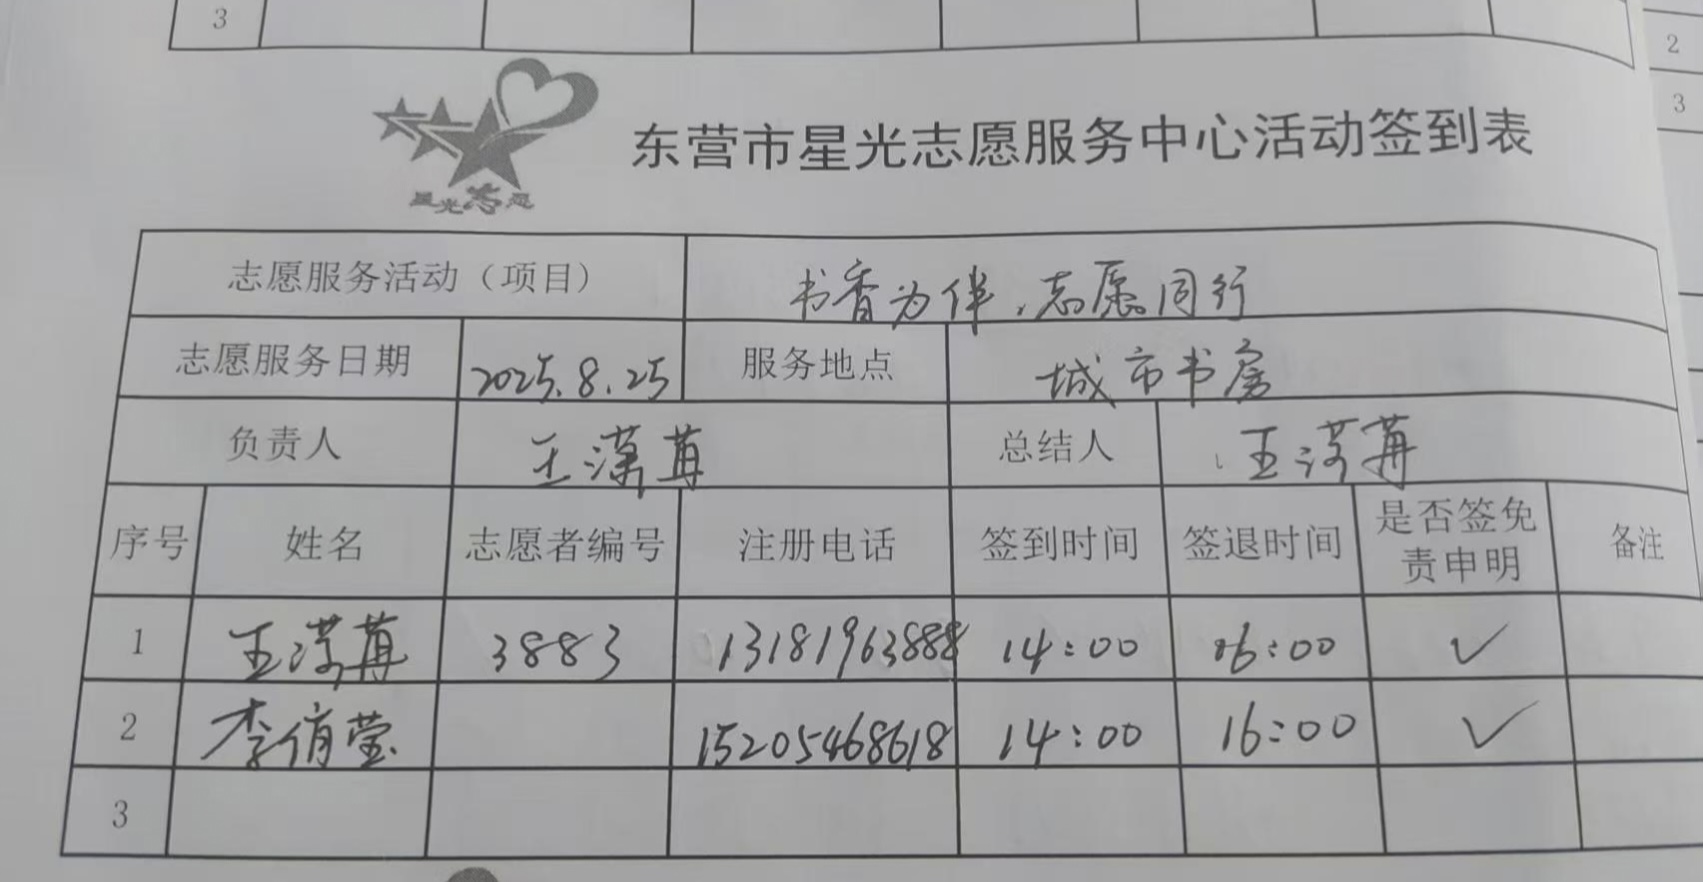 3
2
3
星光志愿
东营市星光志愿服务中心活动签到表
志愿服务活动（项目） 书香为伴，志愿同行
志愿服务日期 2025.8.25 服务地点 城市书房
负责人 王 苒 总结人 王 苒
序号 姓名 志愿者编号 注册电话 签到时间 签退时间 是否签免责申明 备注
1 王 苒 3883 13181963888 14:00 16:00 ✓
2 李俏莹 15205468618 14:00 16:00 ✓
3